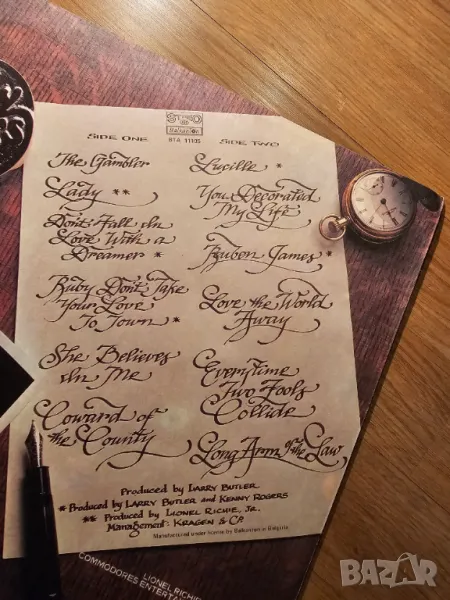 STEREO
Balkanton
BTA 11105
SIDE ONE
The Gambler
Lady **
Don't Fall In
Love With a
Dreamer *
Ruby Don't Take
Your Love
To Town *
She Believes
In Me
Coward of
the County
SIDE TWO
Lucille *
You Decorated
My Life
Ruben James *
Love the World
Away
Everytime
Two Fools
Collide
Long Arm of the Law
Produced by LARRY BUTLER
* Produced by LARRY BUTLER and KENNY ROGERS
** Produced by LIONEL RICHIE, JR.
Management: KRAGEN & CO.
Manufactured under licence by Balkanton in Bulgaria
LIONEL RICHIE
COMMODORES ENTERTA
BAZAR